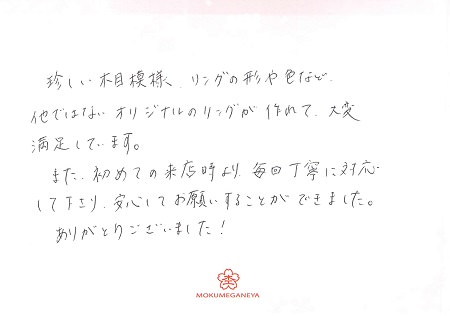 珍しい木目模様、リングの形や色など、
他ではないオリジナルのリングが作れて、大変
満足しています。
また、初めての来店時より、毎回丁寧に対応
して下さり、安心してお願いすることができました。
ありがとうございました!
MOKUMEGANEYA